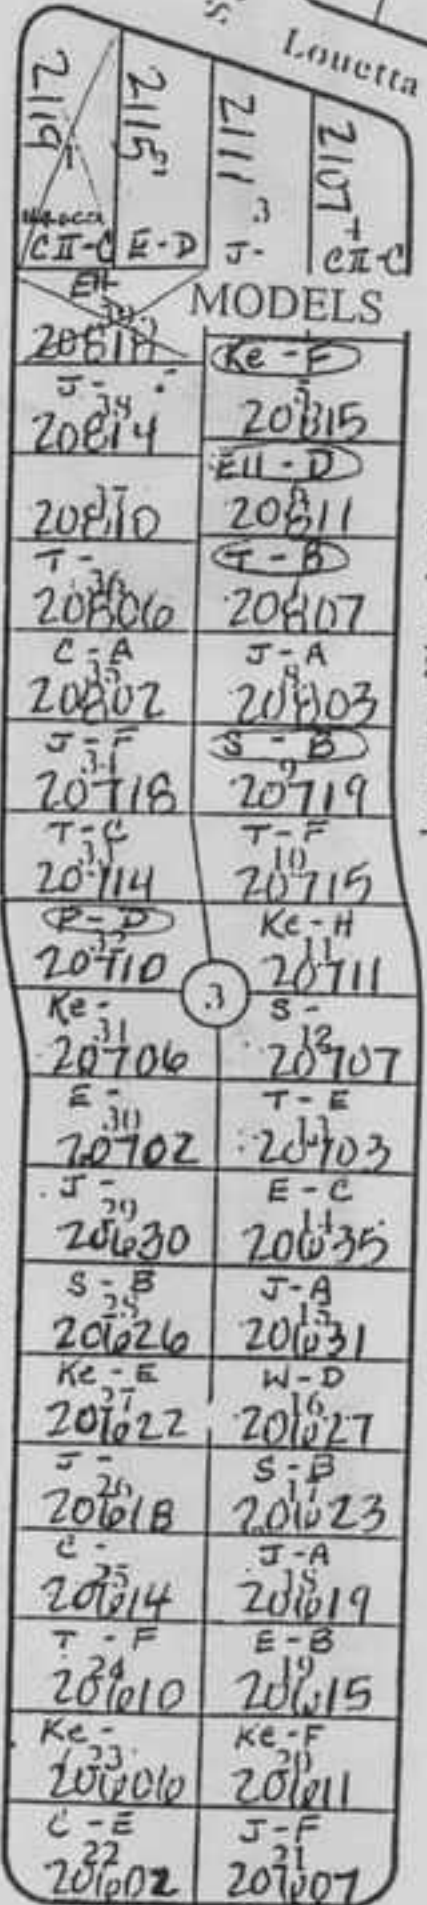 S.
Louetta
2119
1
CII-C
2115
E-D
2111
3
J-
2107
4
CII-C
MODELS
EII
20818
Ke-F
5
20815
J-
38
20814
EII-D
20811
37
20810
T-B
20807
T-
36
20806
J-A
8
20803
C-A
35
20802
S-B
9
20719
J-F
34
20718
T-F
10
20715
T-C
33
20714
Ke-H
11
20711
P-D
32
20710
3
S-
12
20707
Ke-
31
20706
T-E
13
20703
E-
30
20702
E-C
14
20635
J-
29
20630
J-A
15
20631
S-B
28
20626
W-D
16
20627
Ke-E
27
20622
S-B
17
20623
J-
26
20618
J-A
18
20619
C-
25
20614
E-B
19
20615
T-F
24
20610
Ke-F
20
20611
Ke-
23
20606
J-F
21
20607
C-E
22
20602